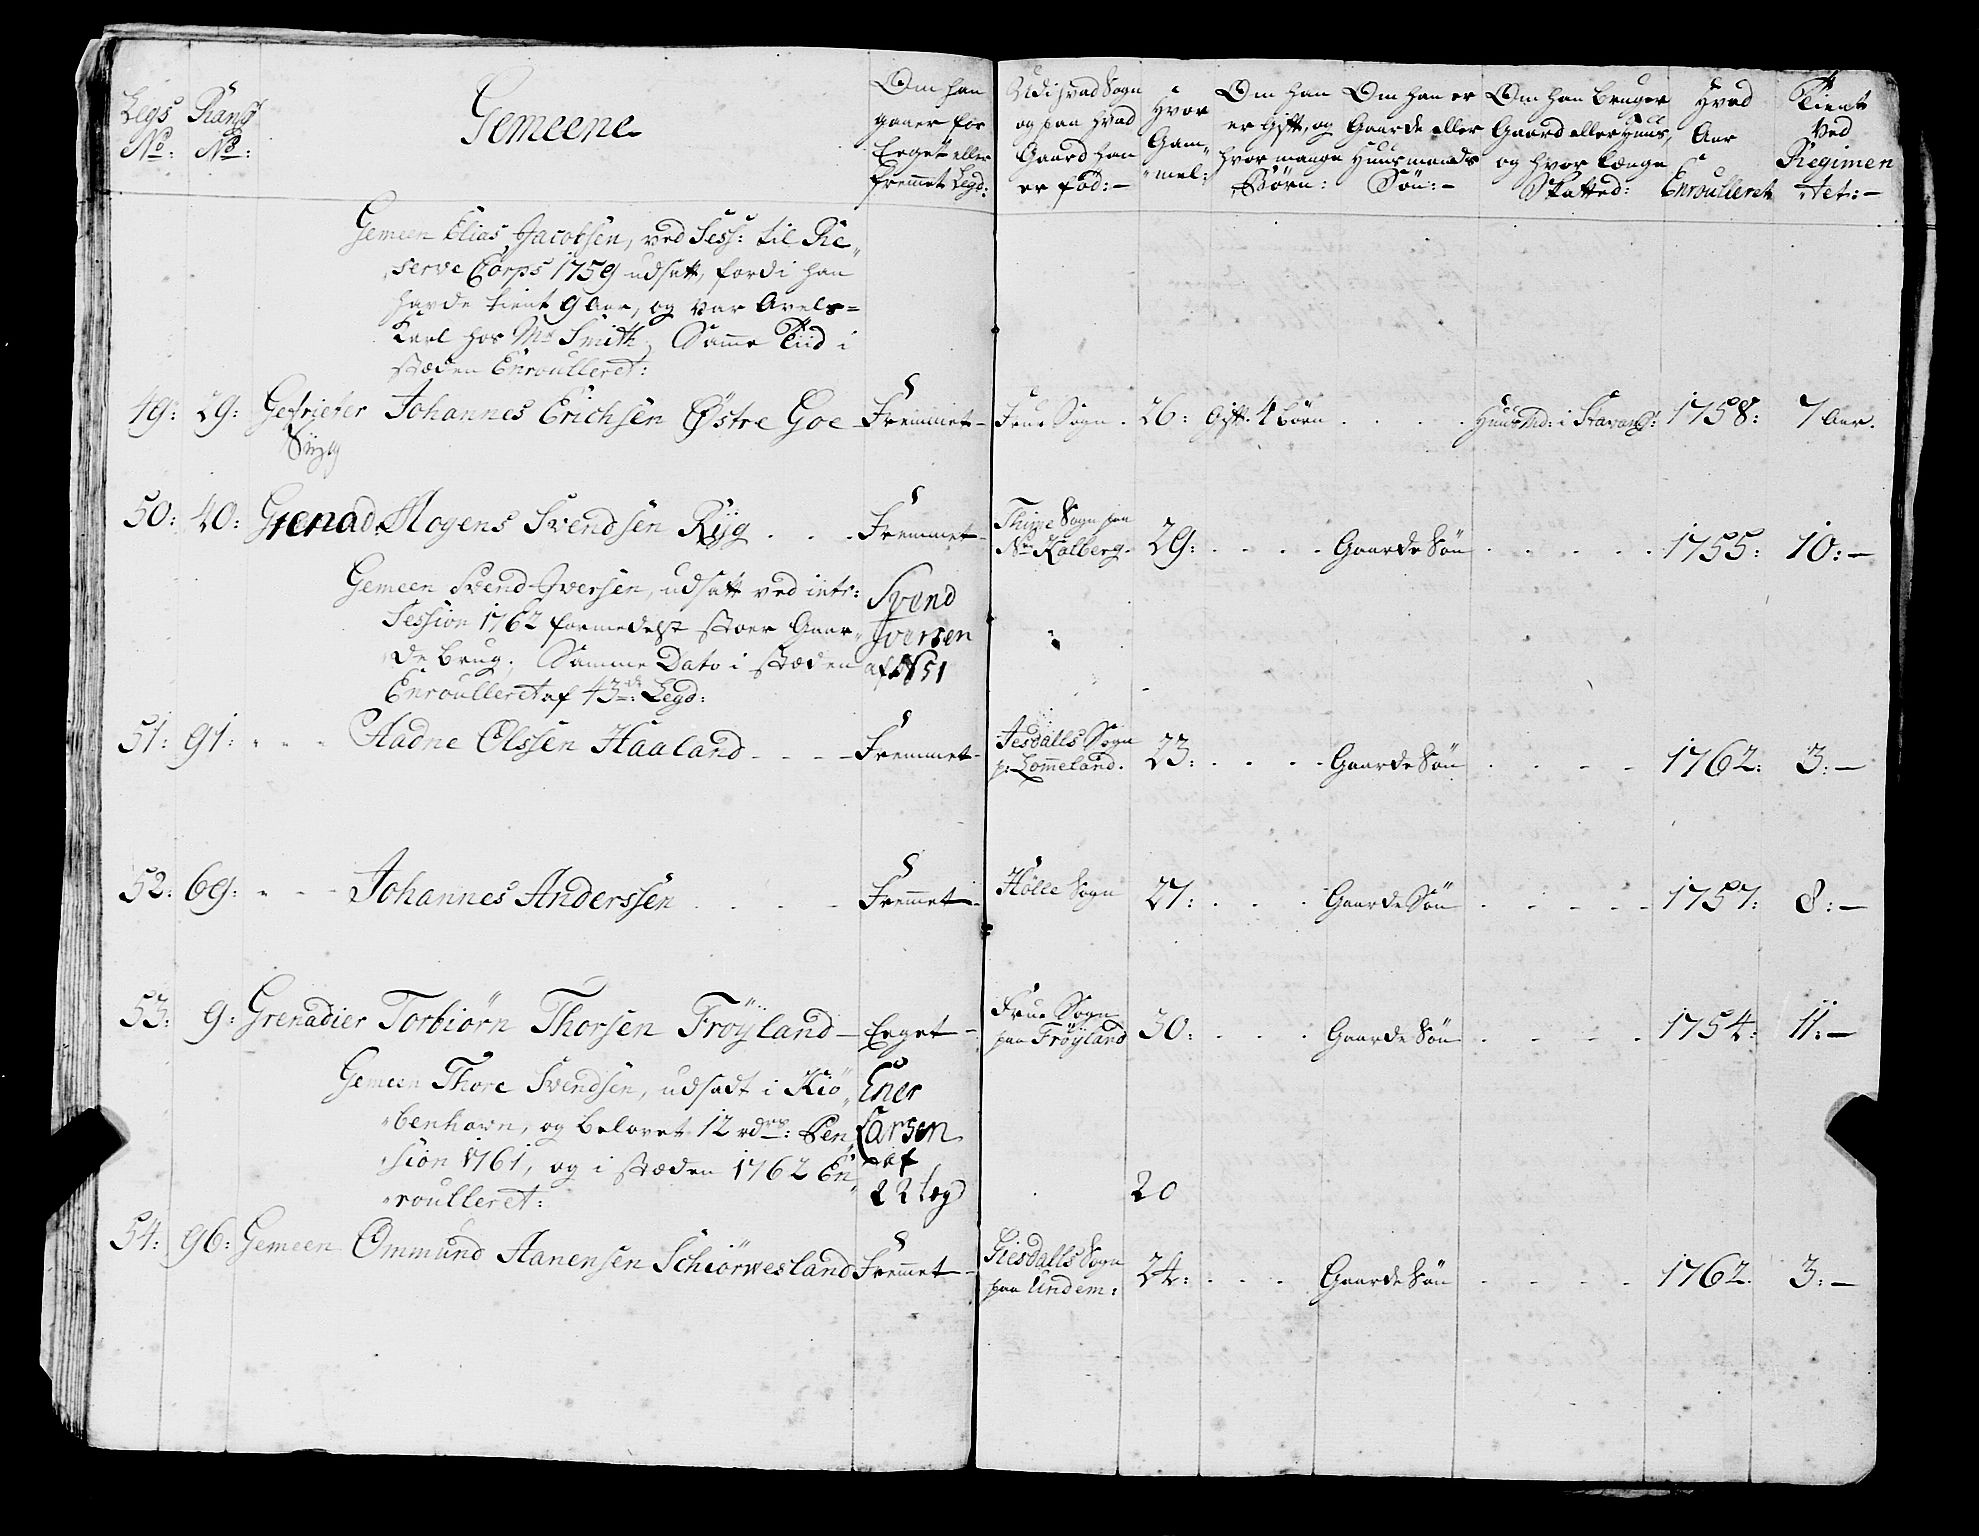 Legs No:
Rang No:
Gemeene
Om han gaaer for Eeget eller fremmet Legd:
Udi hvad Sogn og paa hvad Gaard han er fød:—
Hvor Gam„ „mel:
Om han er Gift, og hvor mange Børn:
Om han er Gaarde eller Huusmands Søn:—
Om han bruger Gaard eller Huus, og hvor længe Skatted:
Hvad Aar Enroulleret
Tient ved Regimen tet:—
Gemeen Elias Jacobsen, ved Sess: til Re„
„serve Corps 1759 udsatt, fordi han
havde tient 9 Aar, og var Avels=
Karl hos Mr Smith, Samme Tiid i
stæden Enroulleret:
49: 29: Gefrieter Johannes Erichsen Østre Goe Fremmet Frue Sogn. 26: Gift. 4 børn . . . . Huusmd: i Stavang: 1758: 7 Aar.
Siyg
50: 40: Grenad. Mogens Svendsen Riyg . . . Fremmet Thime Sogn paa
Nre Kalberg. 29: . . . . Gaarde Søn . . . . . 1755: 10:—
Gemeen Svend Iversen, udsatt ved intr:
Session 1762 formedelst stoer Gaar„
„de brug, Samme Dato i stæden
Enroulleret af 43de: Legd:
Svend
Iversen
af N 51
51: 91: Hadne Olssen Haaland Fremmet Jesdalls Sogn
p: Lommeland. 23: . . . . Gaarde Søn . . . . 1762: 3:—
52: 69: Johannes Anderssen . . . . Fremmet Hølle Sogn 27: . . . Gaarde Søn . . . . . 1757: 8:—
53: 9: Grenadier Torbiørn Thorsen Frøyland Eeget Frue Sogn
paa Frøyland 30: . . . Gaarde Søn . . . . 1754: 11:—
Gemeen Thore Svendsen, udsadt i Kiø„
„benhavn, og belovet 12 rdrs: Pen„
„sion 1761, og i stæden 1762 En„
„roulleret:
Ener
Larsen
af
22 legd
20
54: 96: Gemeen Ommund Aanensen Schiørwesland Fremmet Giesdalls Sogn
paa Undem: 24: . . . Gaarde Søn . . . . 1762. 3:—